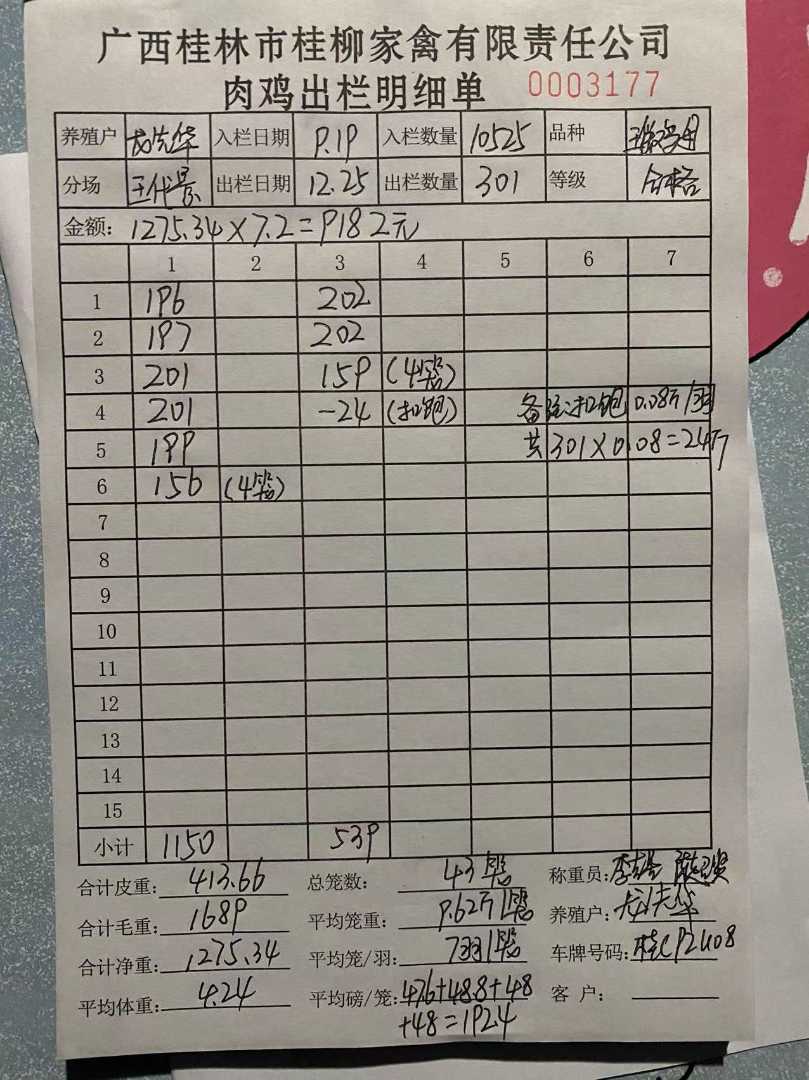 广西桂林市桂柳家禽有限责任公司
肉鸡出栏明细单 0003177
养殖户 入栏日期 9.19 入栏数量 10525 品种
分场 出栏日期 12.25 出栏数量 301 等级 合格
金额: 1275.34×7.2=9182元
1 2 3 4 5 6 7
1 196 202
2 197 202
3 201 159 (4笼)
4 201 -24 (扣饱) 备注:扣饱 0.08斤/羽
5 199 共 301×0.08=24斤
6 156 (4笼)
7
8
9
10
11
12
13
14
15
小计 1150 539
合计皮重: 413.66 总笼数: 43笼 称重员:
合计毛重: 1689 平均笼重: 9.62斤/笼 养殖户:
合计净重: 1275.34 平均笼/羽: 7羽/笼 车牌号码: 桂CP2U08
平均体重: 4.24 平均磅/笼: 47.6+48.8+48 客户:
+48=192.4